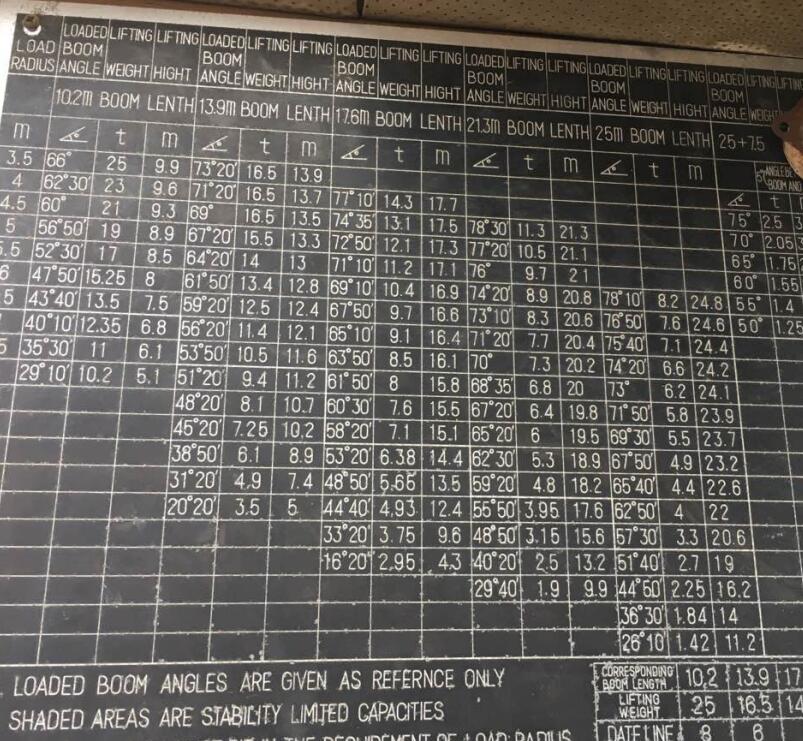 LOAD RADIUS LOADED BOOM ANGLE LIFTING WEIGHT LIFTING HIGHT LOADED BOOM ANGLE LIFTING WEIGHT LIFTING HIGHT LOADED BOOM ANGLE LIFTING WEIGHT LIFTING HIGHT LOADED BOOM ANGLE LIFTING WEIGHT LIFTING HIGHT LOADED BOOM ANGLE LIFTING WEIGHT LIFTING HIGHT LOADED BOOM ANGLE LIFTING
10.2m BOOM LENTH 13.9m BOOM LENTH 17.6m BOOM LENTH 21.3m BOOM LENTH 25m BOOM LENTH 25+7.5
m t m t m t m t m t m t
3.5 66° 25 9.9 73°20' 16.5 13.9
4 62°30' 23 9.6 71°20' 16.5 13.7 77°10' 14.3 17.7 75° 2.5
4.5 60° 21 9.3 69° 16.5 13.5 74°35' 13.1 17.5 78°30' 11.3 21.3 70° 2.05
5 56°50' 19 8.9 67°20' 15.5 13.3 72°50' 12.1 17.3 77°20' 10.5 21.1 65° 1.75
5.5 52°30' 17 8.5 64°20' 14 13 71°10' 11.2 17.1 76° 9.7 21 60° 1.55
6 47°50' 15.25 8 61°50' 13.4 12.8 69°10' 10.4 16.9 74°20' 8.9 20.8 78°10' 8.2 24.8 55° 1.4
5 43°40' 13.5 7.5 59°20' 12.5 12.4 67°50' 9.7 16.6 73°10' 8.3 20.6 76°50' 7.6 24.6 50° 1.25
40°10' 12.35 6.8 56°20' 11.4 12.1 65°10' 9.1 16.4 71°20' 7.7 20.4 75°40' 7.1 24.4
5 35°30' 11 6.1 53°50' 10.5 11.6 63°50' 8.5 16.1 70° 7.3 20.2 74°20' 6.6 24.2
29°10' 10.2 5.1 51°20' 9.4 11.2 61°50' 8 15.8 68°35' 6.8 20 73° 6.2 24.1
48°20' 8.1 10.7 60°30' 7.6 15.5 67°20' 6.4 19.8 71°50' 5.8 23.9
45°20' 7.25 10.2 58°20' 7.1 15.1 65°20' 6 19.5 69°30' 5.5 23.7
38°50' 6.1 8.9 53°20' 6.38 14.4 62°30' 5.3 18.9 67°50' 4.9 23.2
31°20' 4.9 7.4 48°50' 5.65 13.5 59°20' 4.8 18.2 65°40' 4.4 22.6
20°20' 3.5 5 44°40' 4.93 12.4 55°50' 3.95 17.6 62°50' 4 22
33°20' 3.75 9.6 48°50' 3.15 15.6 57°30' 3.3 20.6
16°20' 2.95 4.3 40°20' 2.5 13.2 51°40' 2.7 19
29°40' 1.9 9.9 44°50' 2.25 16.2
36°30' 1.84 14
26°10' 1.42 11.2
LOADED BOOM ANGLES ARE GIVEN AS REFERNCE ONLY
SHADED AREAS ARE STABILITY LIMITED CAPACITIES
IN THE REQUIREMENT OF LOAD RADIUS
CORRESPONDING BOOM LENGTH 10.2 13.9 17
LIFTING WEIGHT 25 16.5 14
DATE LINE 8 6